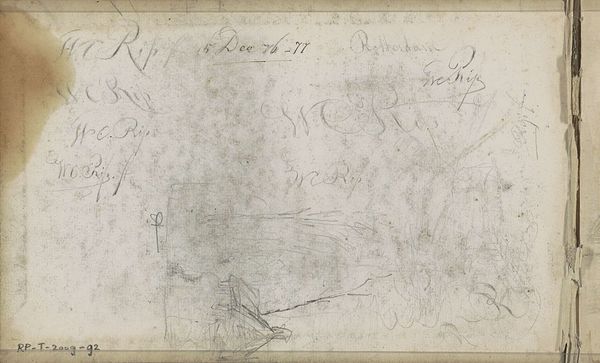 W.C. Rip f 5 Dec 76-77 Rotterdam
W.C. Rip
W C Rip
W C Rip
W.C. Rip
W.C. Rip. f
W.C. Rip
RP-T-2009-92